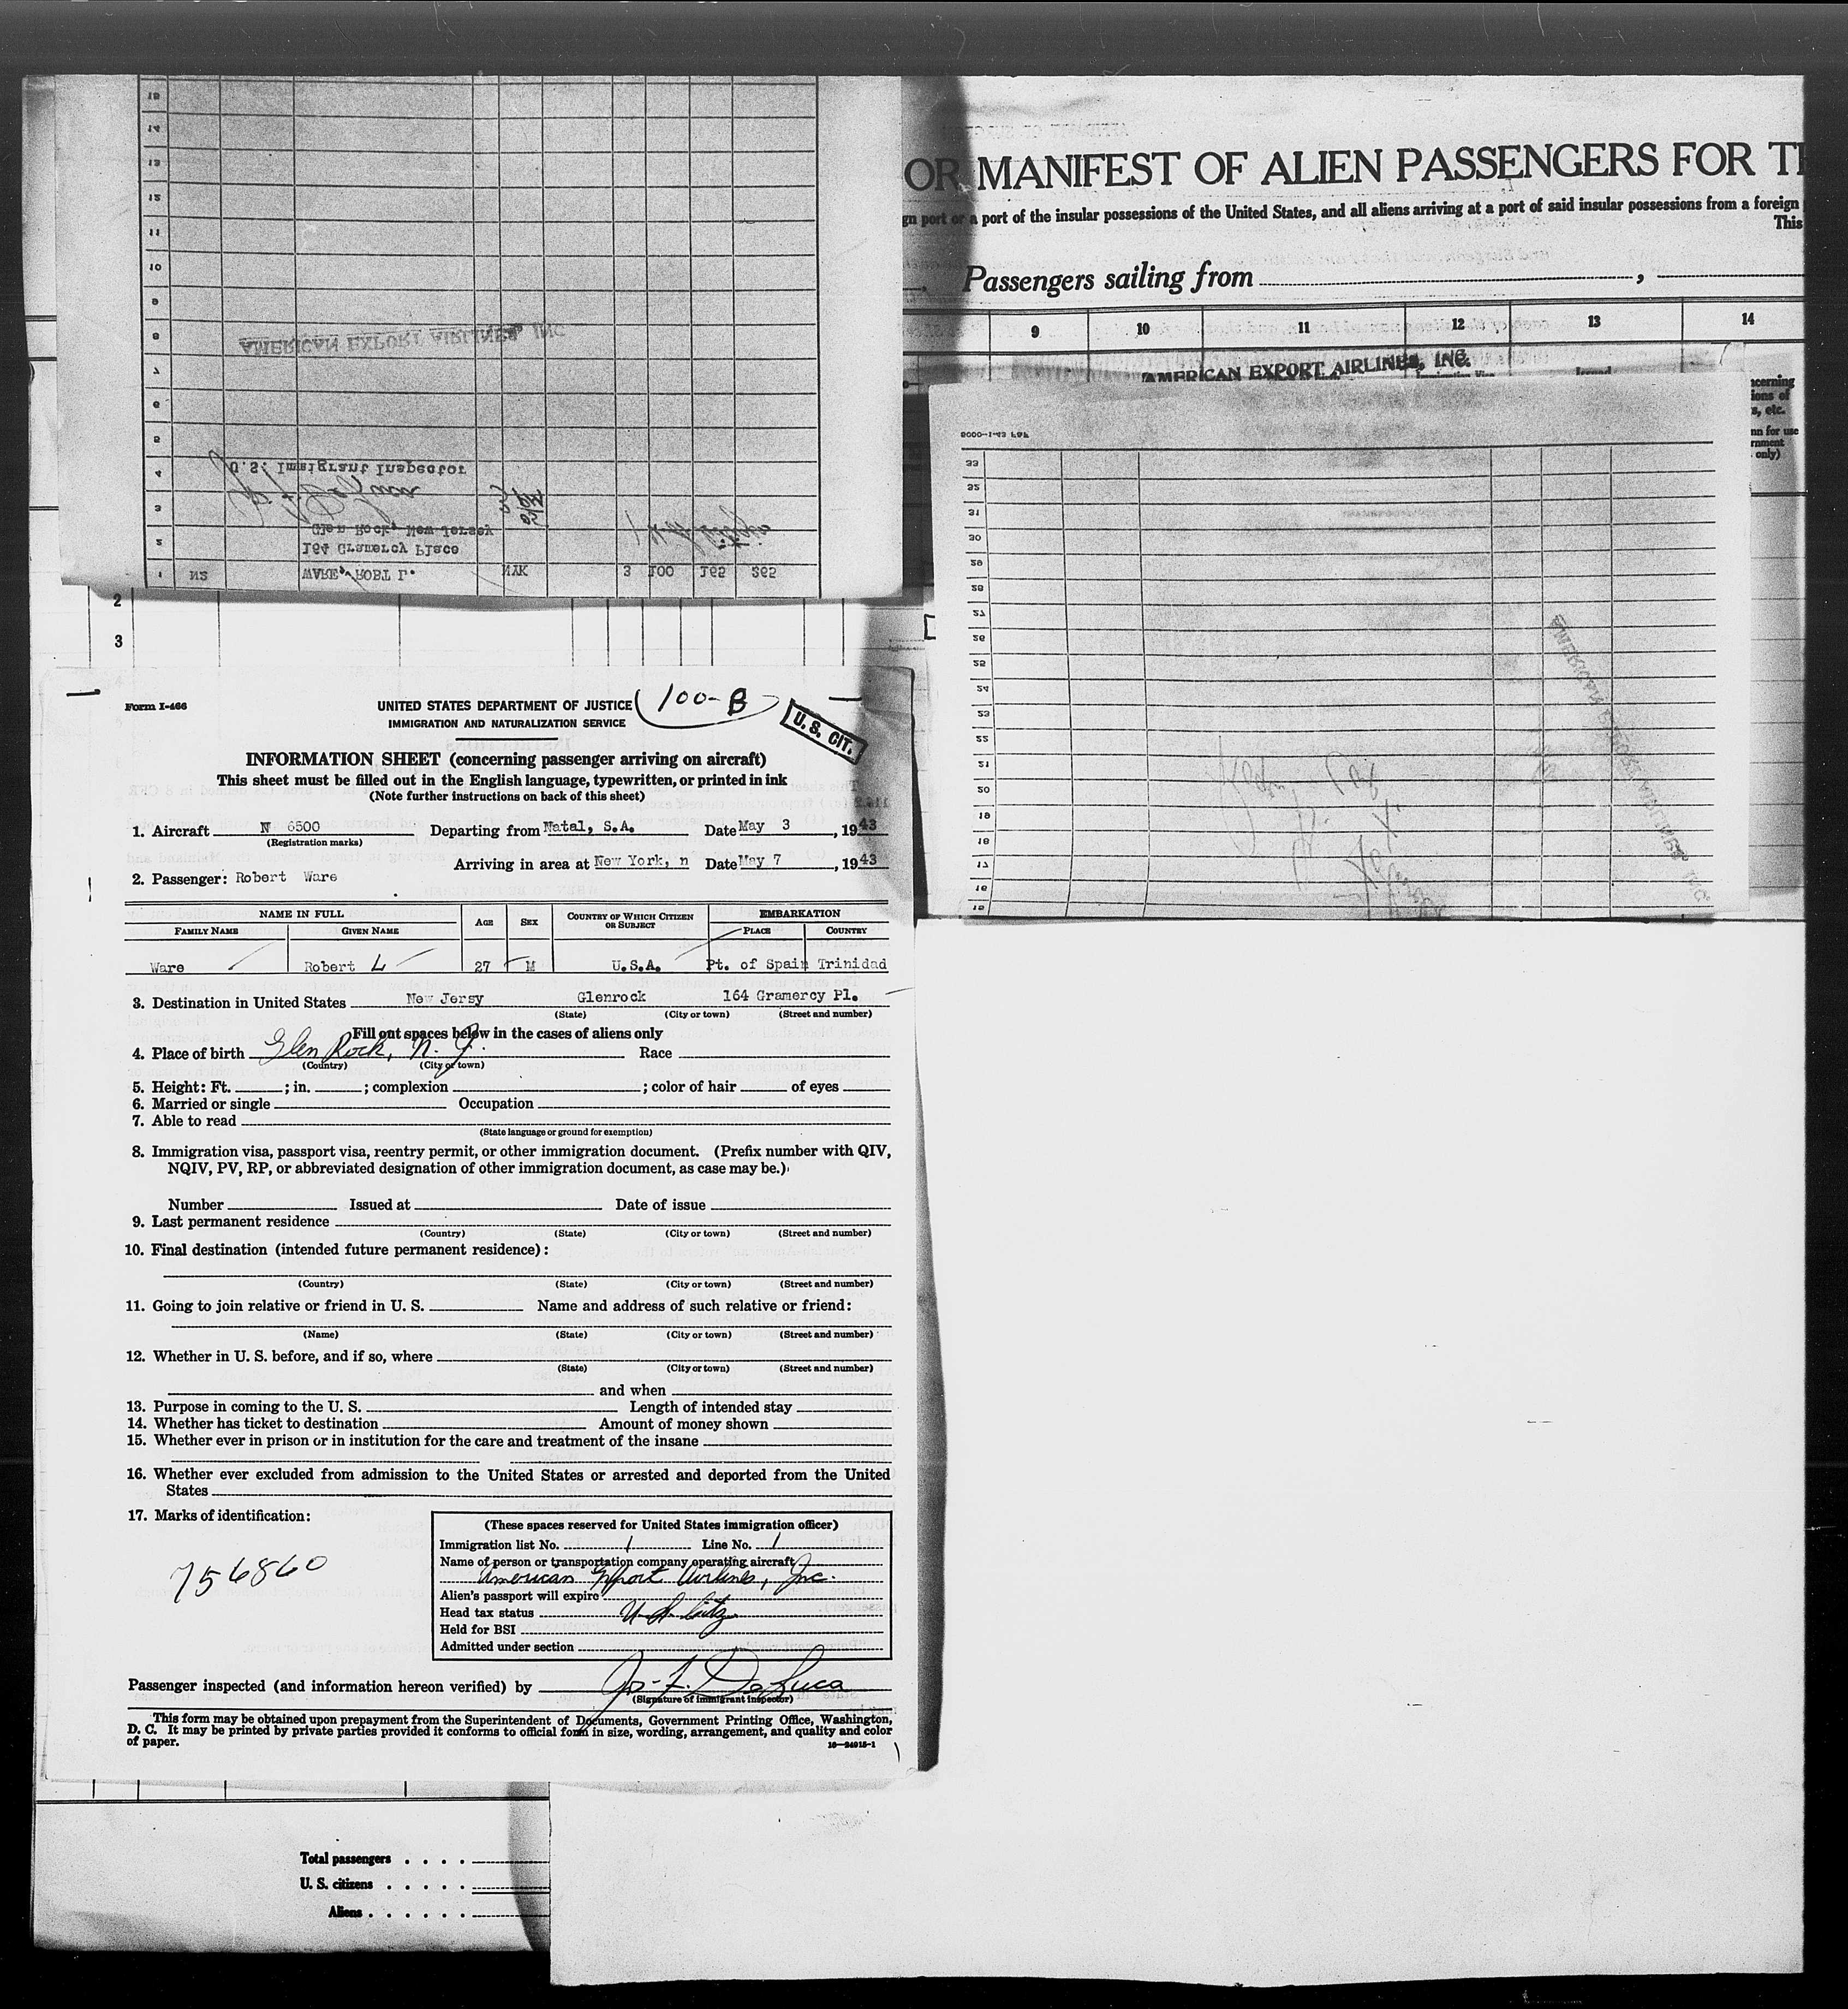 15
14
13
12
11
10
9
8
AMERICAN EXPORT AIRLINES, INC
7
6
5
4
U.S. Immigrant Inspector
3
Glen Rock, New Jersey
2
164 Gramercy Place
1 WARE, ROBT L. NYK 3 100 165 265
2
3
OR MANIFEST OF ALIEN PASSENGERS FOR TH
gn port or a port of the insular possessions of the United States, and all aliens arriving at a port of said insular possessions from a foreign
This
Passengers sailing from
9 10 11 12 13 14
AMERICAN EXPORT AIRLINES, INC.
ncerning
ions of
s, etc.
nn for use
rnment
only)
33
32
31
30
29
28
27
26
25
24
23
22
21
20
19
18
17
16
15
AMERICAN EXPORT AIRLINES, INC.
Form I-466
UNITED STATES DEPARTMENT OF JUSTICE 100-B
IMMIGRATION AND NATURALIZATION SERVICE
U. S. CIT.
INFORMATION SHEET (concerning passenger arriving on aircraft)
This sheet must be filled out in the English language, typewritten, or printed in ink
(Note further instructions on back of this sheet)
1. Aircraft N 6500 Departing from Natal, S.A. Date May 3, 1943
(Registration marks)
Arriving in area at New York, n Date May 7, 1943
2. Passenger: Robert Ware
NAME IN FULL AGE SEX COUNTRY OF WHICH CITIZEN OR SUBJECT EMBARKATION
FAMILY NAME GIVEN NAME PLACE COUNTRY
Ware Robert L 27 M U.S.A. Pt. of Spain Trinidad
3. Destination in United States New Jersy Glenrock 164 Gramercy Pl.
(State) (City or town) (Street and number)
Fill out spaces below in the cases of aliens only
4. Place of birth Glen Rock, N. J. Race
(Country) (City or town)
5. Height: Ft. ; in. ; complexion ; color of hair of eyes
6. Married or single Occupation
7. Able to read
(State language or ground for exemption)
8. Immigration visa, passport visa, reentry permit, or other immigration document. (Prefix number with QIV,
NQIV, PV, RP, or abbreviated designation of other immigration document, as case may be.)
Number Issued at Date of issue
9. Last permanent residence
(Country) (State) (City or town) (Street and number)
10. Final destination (intended future permanent residence):
(Country) (State) (City or town) (Street and number)
11. Going to join relative or friend in U. S. Name and address of such relative or friend:
(Name) (State) (City or town) (Street and number)
12. Whether in U. S. before, and if so, where
(State) (City or town) (Street and number)
and when
13. Purpose in coming to the U. S. Length of intended stay
14. Whether has ticket to destination Amount of money shown
15. Whether ever in prison or in institution for the care and treatment of the insane
16. Whether ever excluded from admission to the United States or arrested and deported from the United
States
17. Marks of identification:
756860
(These spaces reserved for United States immigration officer)
Immigration list No. 1 Line No. 1
Name of person or transportation company operating aircraft
American Export Airlines, Inc.
Alien's passport will expire
Head tax status U S Citz
Held for BSI
Admitted under section
Passenger inspected (and information hereon verified) by Jos. F. DeLuca
(Signature of immigrant inspector)
This form may be obtained upon prepayment from the Superintendent of Documents, Government Printing Office, Washington,
D. C. It may be printed by private parties provided it conforms to official form in size, wording, arrangement, and quality and color
of paper.
16—24915-1
Total passengers
U. S. citizens
Aliens